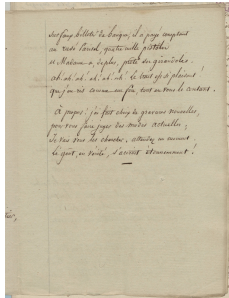 Ses faux billets de banque, il a payé comptant
un rude Conseil, quatre mille pistoles
et Madame a, de plus, prêté des girandoles.
ah! ah! ah! ah! ah! le tout est plaisant!
que j'en ris comme un fou, tout en vous le contant.
À propos: j'ai fait choix de gravures nouvelles,
pour vous faire juger des modes actuelles;
Je vais vous les chercher, attendez un moment
Le goût, en vérité, s'accroît étonnamment!